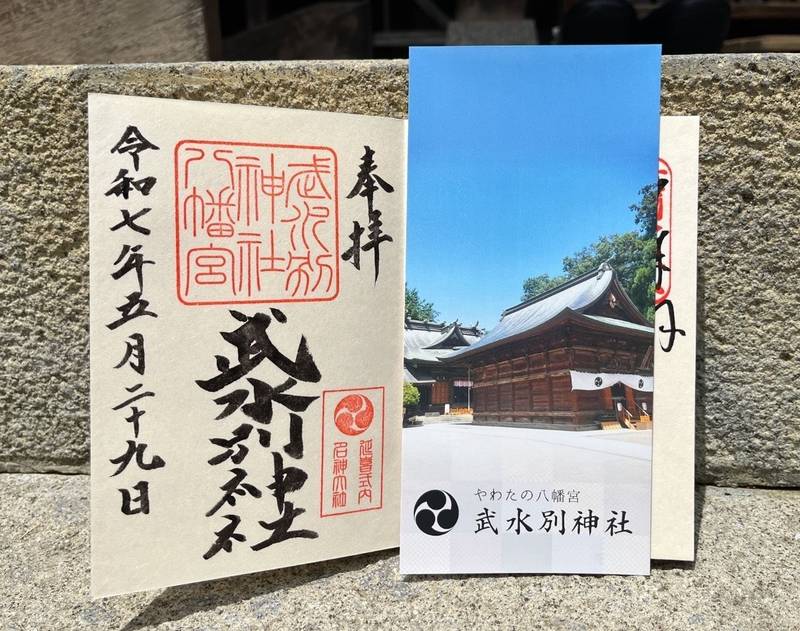 奉拝
武水別
神社
八幡宮
武水別神社
延喜式内
名神大社
令和七年五月二十九日
やわたの八幡宮
武水別神社